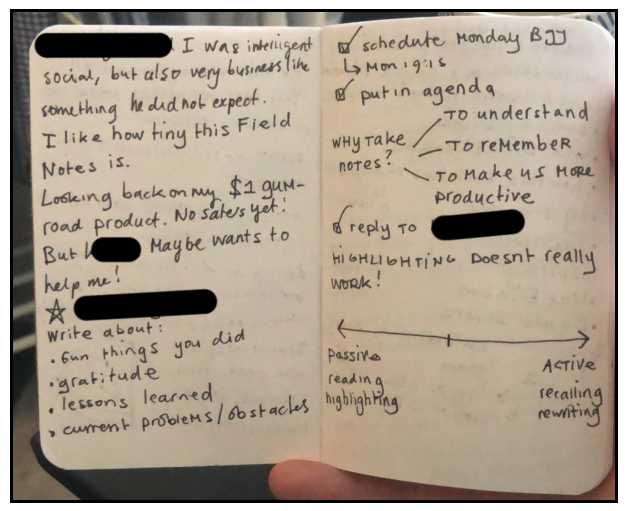 I was intelligent
social, but also very business like
something he did not expect.
I like how tiny this Field
Notes is.
Looking back on my $1 gum-
road product. No sales yet!
But Maybe wants to
help me!
Write about:
• fun things you did
• gratitude
• lessons learned
• current problems/obstacles
schedule Monday BJJ
↳ Mon 19:15
put in agenda
WHY TAKE NOTES?
TO understand
TO reMeMbeR
TO MaKe US MoRe
productive
reply TO
HIGHLIGHTING Doesnt really
WORK!
passive
reading
highlighting
Active
recalling
rewriting